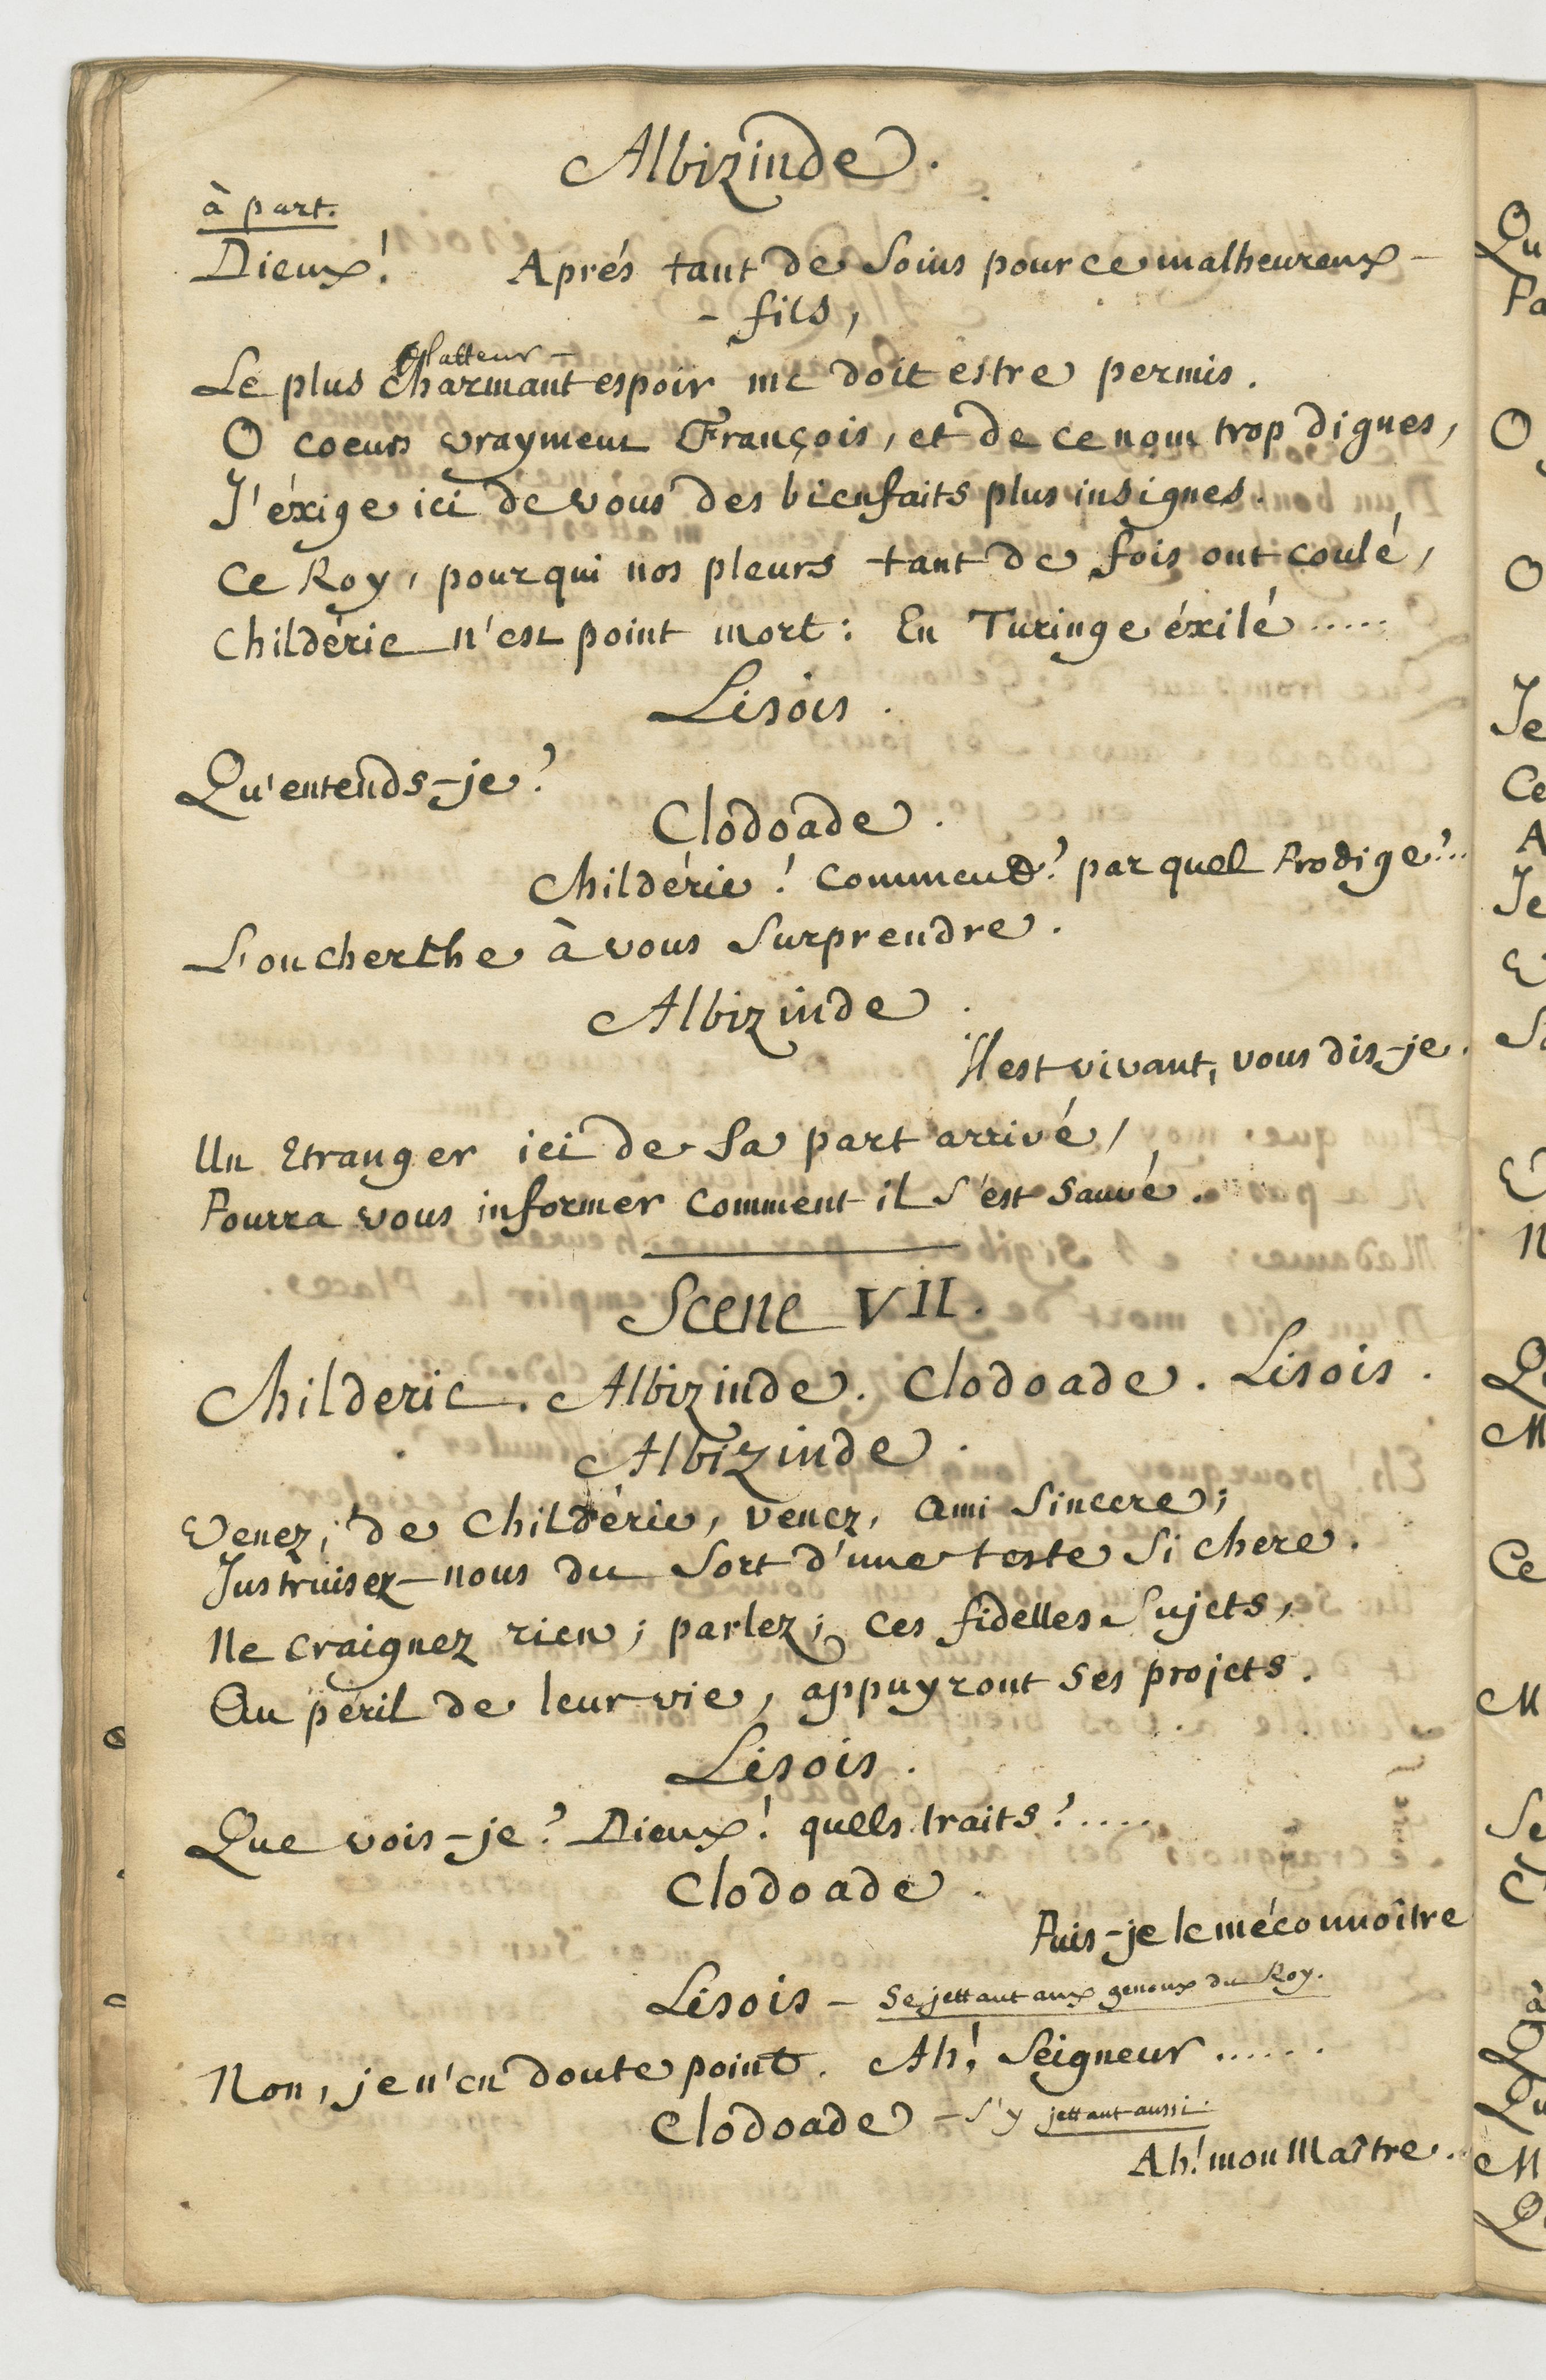 Albizinde.
à part.
Dieux! Aprés tant de Soins pour ce malheureux -
- fils,
flatteur -
Le plus charmant espoir me doit estre permis.
O coeurs vrayment François, et de ce nom trop dignes,
J'éxige ici de vous des bienfaits plus insignes.
Ce Roy, pour qui nos pleurs tant de fois ont coulé,
Childéric n'est point mort: En Turinge éxilé .....
Lisois.
Qu'entends-je?
Clodoade.
Childéric! Comment? par quel Prodige?...
L'on cherche à vous Surprendre.
Albizinde.
Il est vivant, vous dis-je.
Un Etranger ici de Sa part arrivé,
Pourra vous informer comment il S'est Sauvé.
Scene VII.
Childeric. Albizinde. Clodoade. Lisois.
Albizinde.
Venez, de Childéric, venez, ami Sincere;
Instruisez-nous du Sort d'une teste Si chere.
Ne craignez rien; parlez; ces fidelles Sujets,
Au péril de leur vie, appuyront ses projets.
Lisois.
Que vois-je? Dieux! quels traits?.....
Clodoade.
Puis-je le méconnoître
Lisois - Se jettant aux genoux du Roy.
Non, je n'en doute point. Ah! Seigneur ......
Clodoade - S'y jettant aussi.
Ah! mon Maître..
Qu
Pa
O
O
Je
Ce
A
Je
E
So
E
N
Qu
M
Ce
M
Se
C
à
Q
Qu
M
Qu